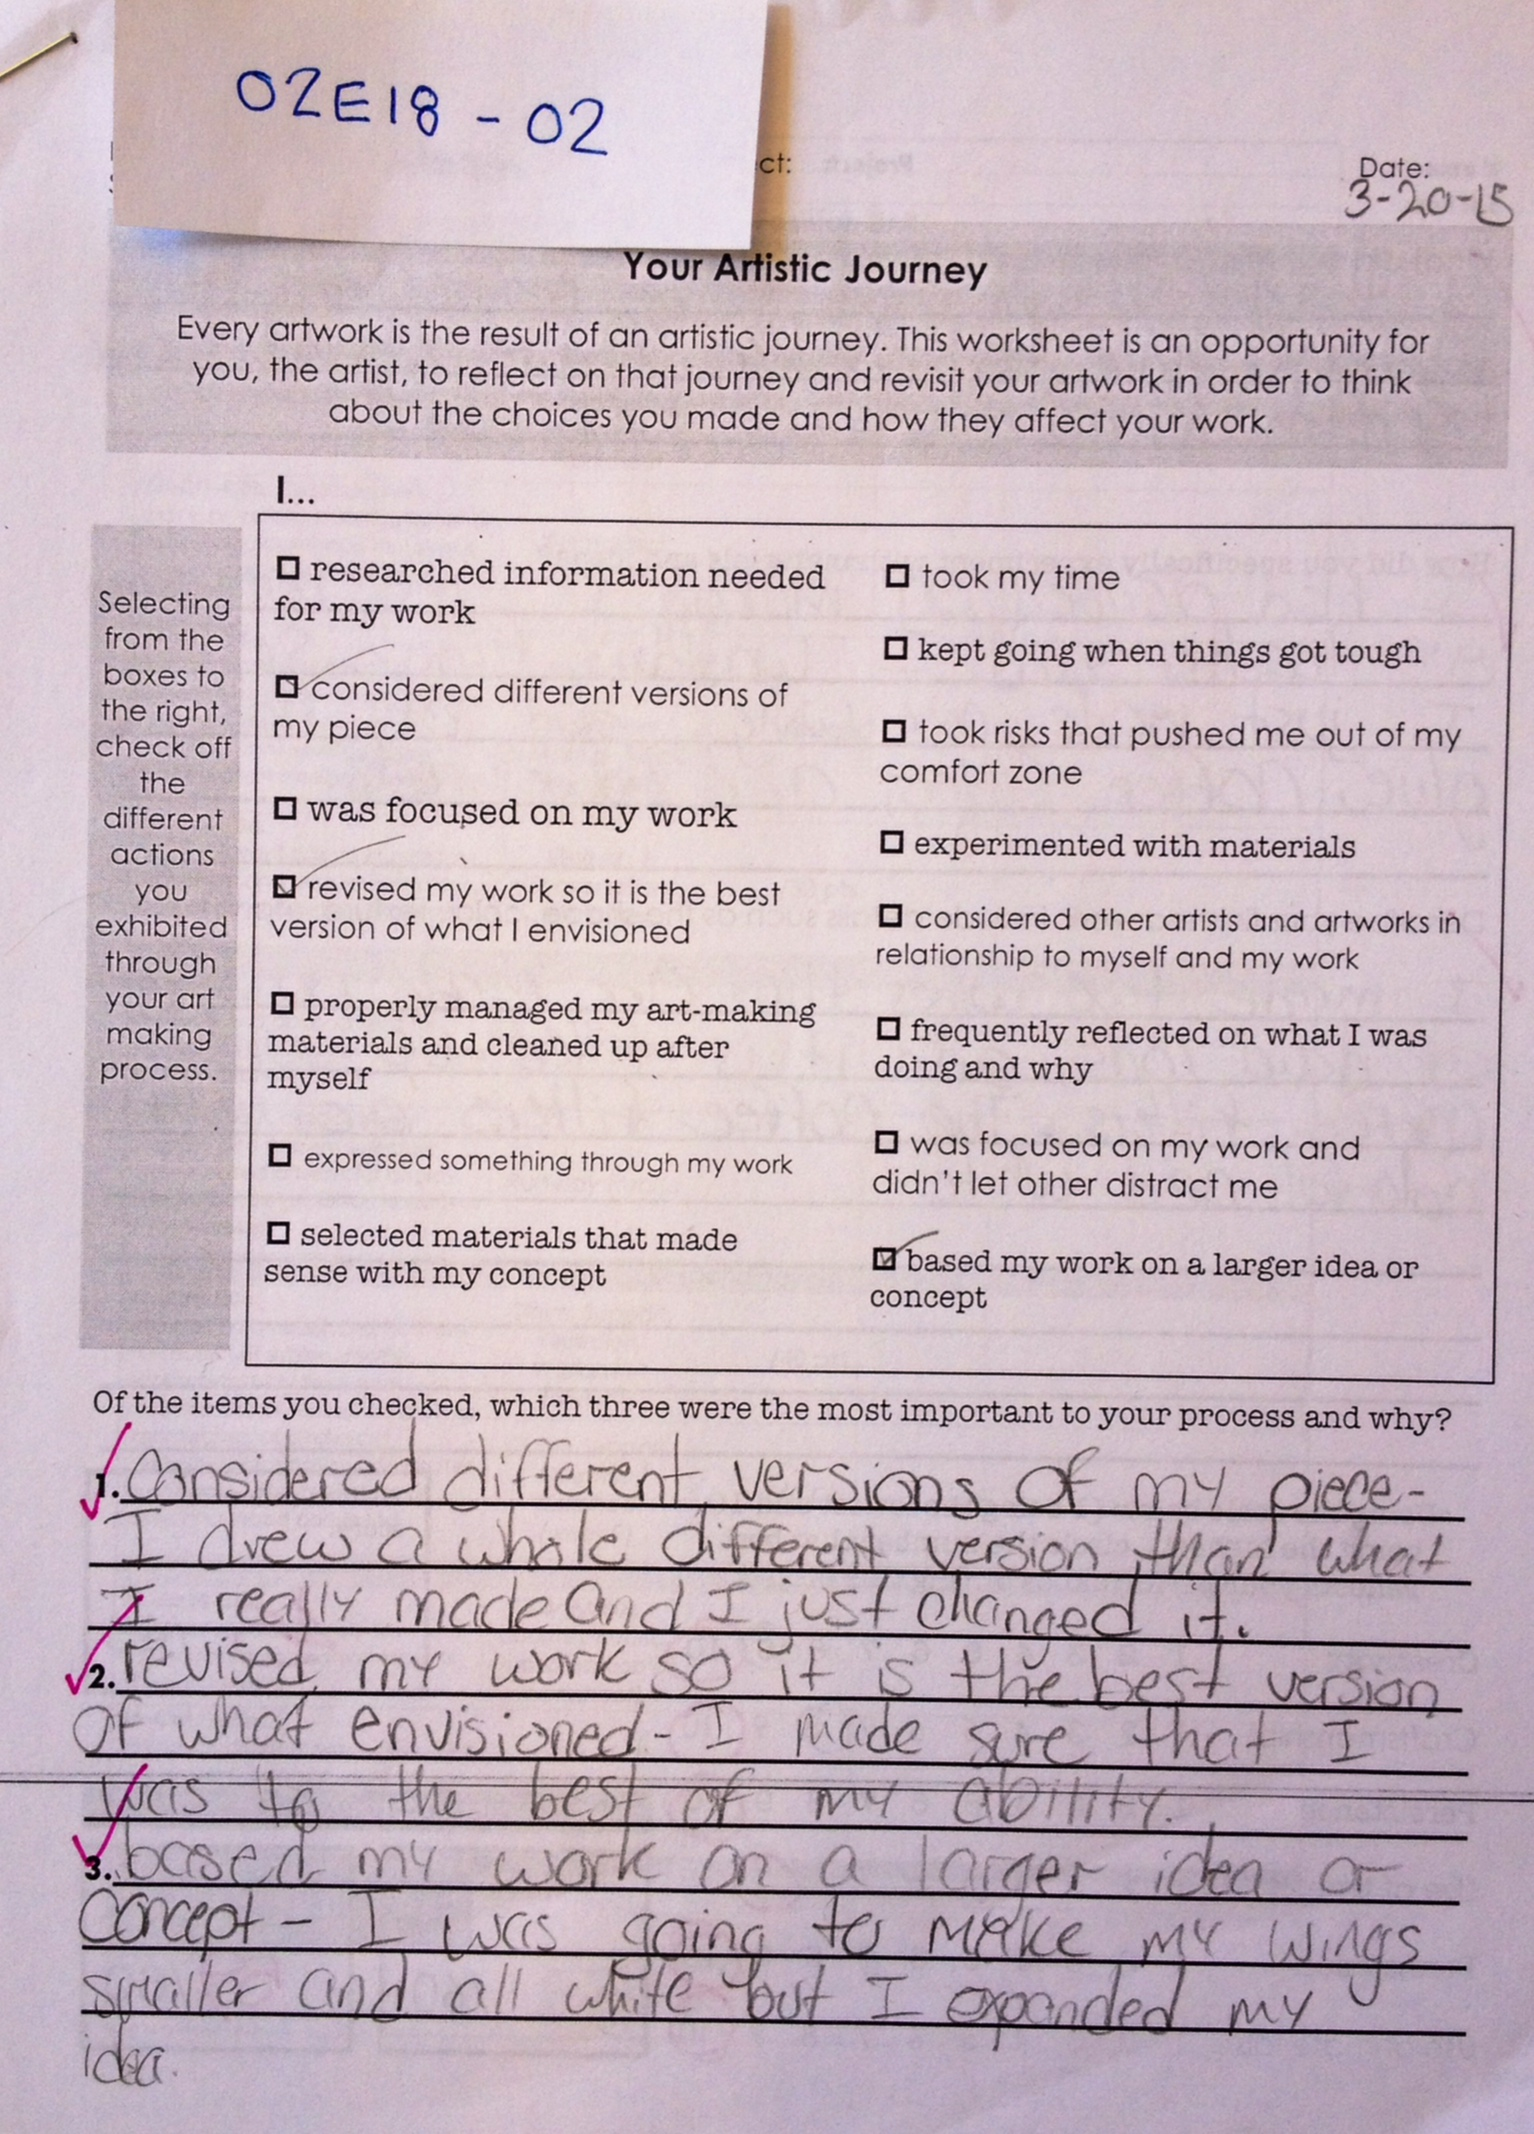 02E18 - 02
ct:
Date:
3-20-15
Your Artistic Journey
Every artwork is the result of an artistic journey. This worksheet is an opportunity for
you, the artist, to reflect on that journey and revisit your artwork in order to think
about the choices you made and how they affect your work.
I...
Selecting
from the
boxes to
the right,
check off
the
different
actions
you
exhibited
through
your art
making
process.
researched information needed
for my work
considered different versions of
my piece
was focused on my work
revised my work so it is the best
version of what I envisioned
properly managed my art-making
materials and cleaned up after
myself
expressed something through my work
selected materials that made
sense with my concept
took my time
kept going when things got tough
took risks that pushed me out of my
comfort zone
experimented with materials
considered other artists and artworks in
relationship to myself and my work
frequently reflected on what I was
doing and why
was focused on my work and
didn't let other distract me
based my work on a larger idea or
concept
Of the items you checked, which three were the most important to your process and why?
1. Considered different versions of my piece-
I drew a whole different version than what
I really made and I just changed it.
2. revised my work so it is the best version
of what envisioned - I made sure that I
was to the best of my ability.
3. based my work on a larger idea or
concept - I was going to make my wings
smaller and all white but I expanded my
idea.